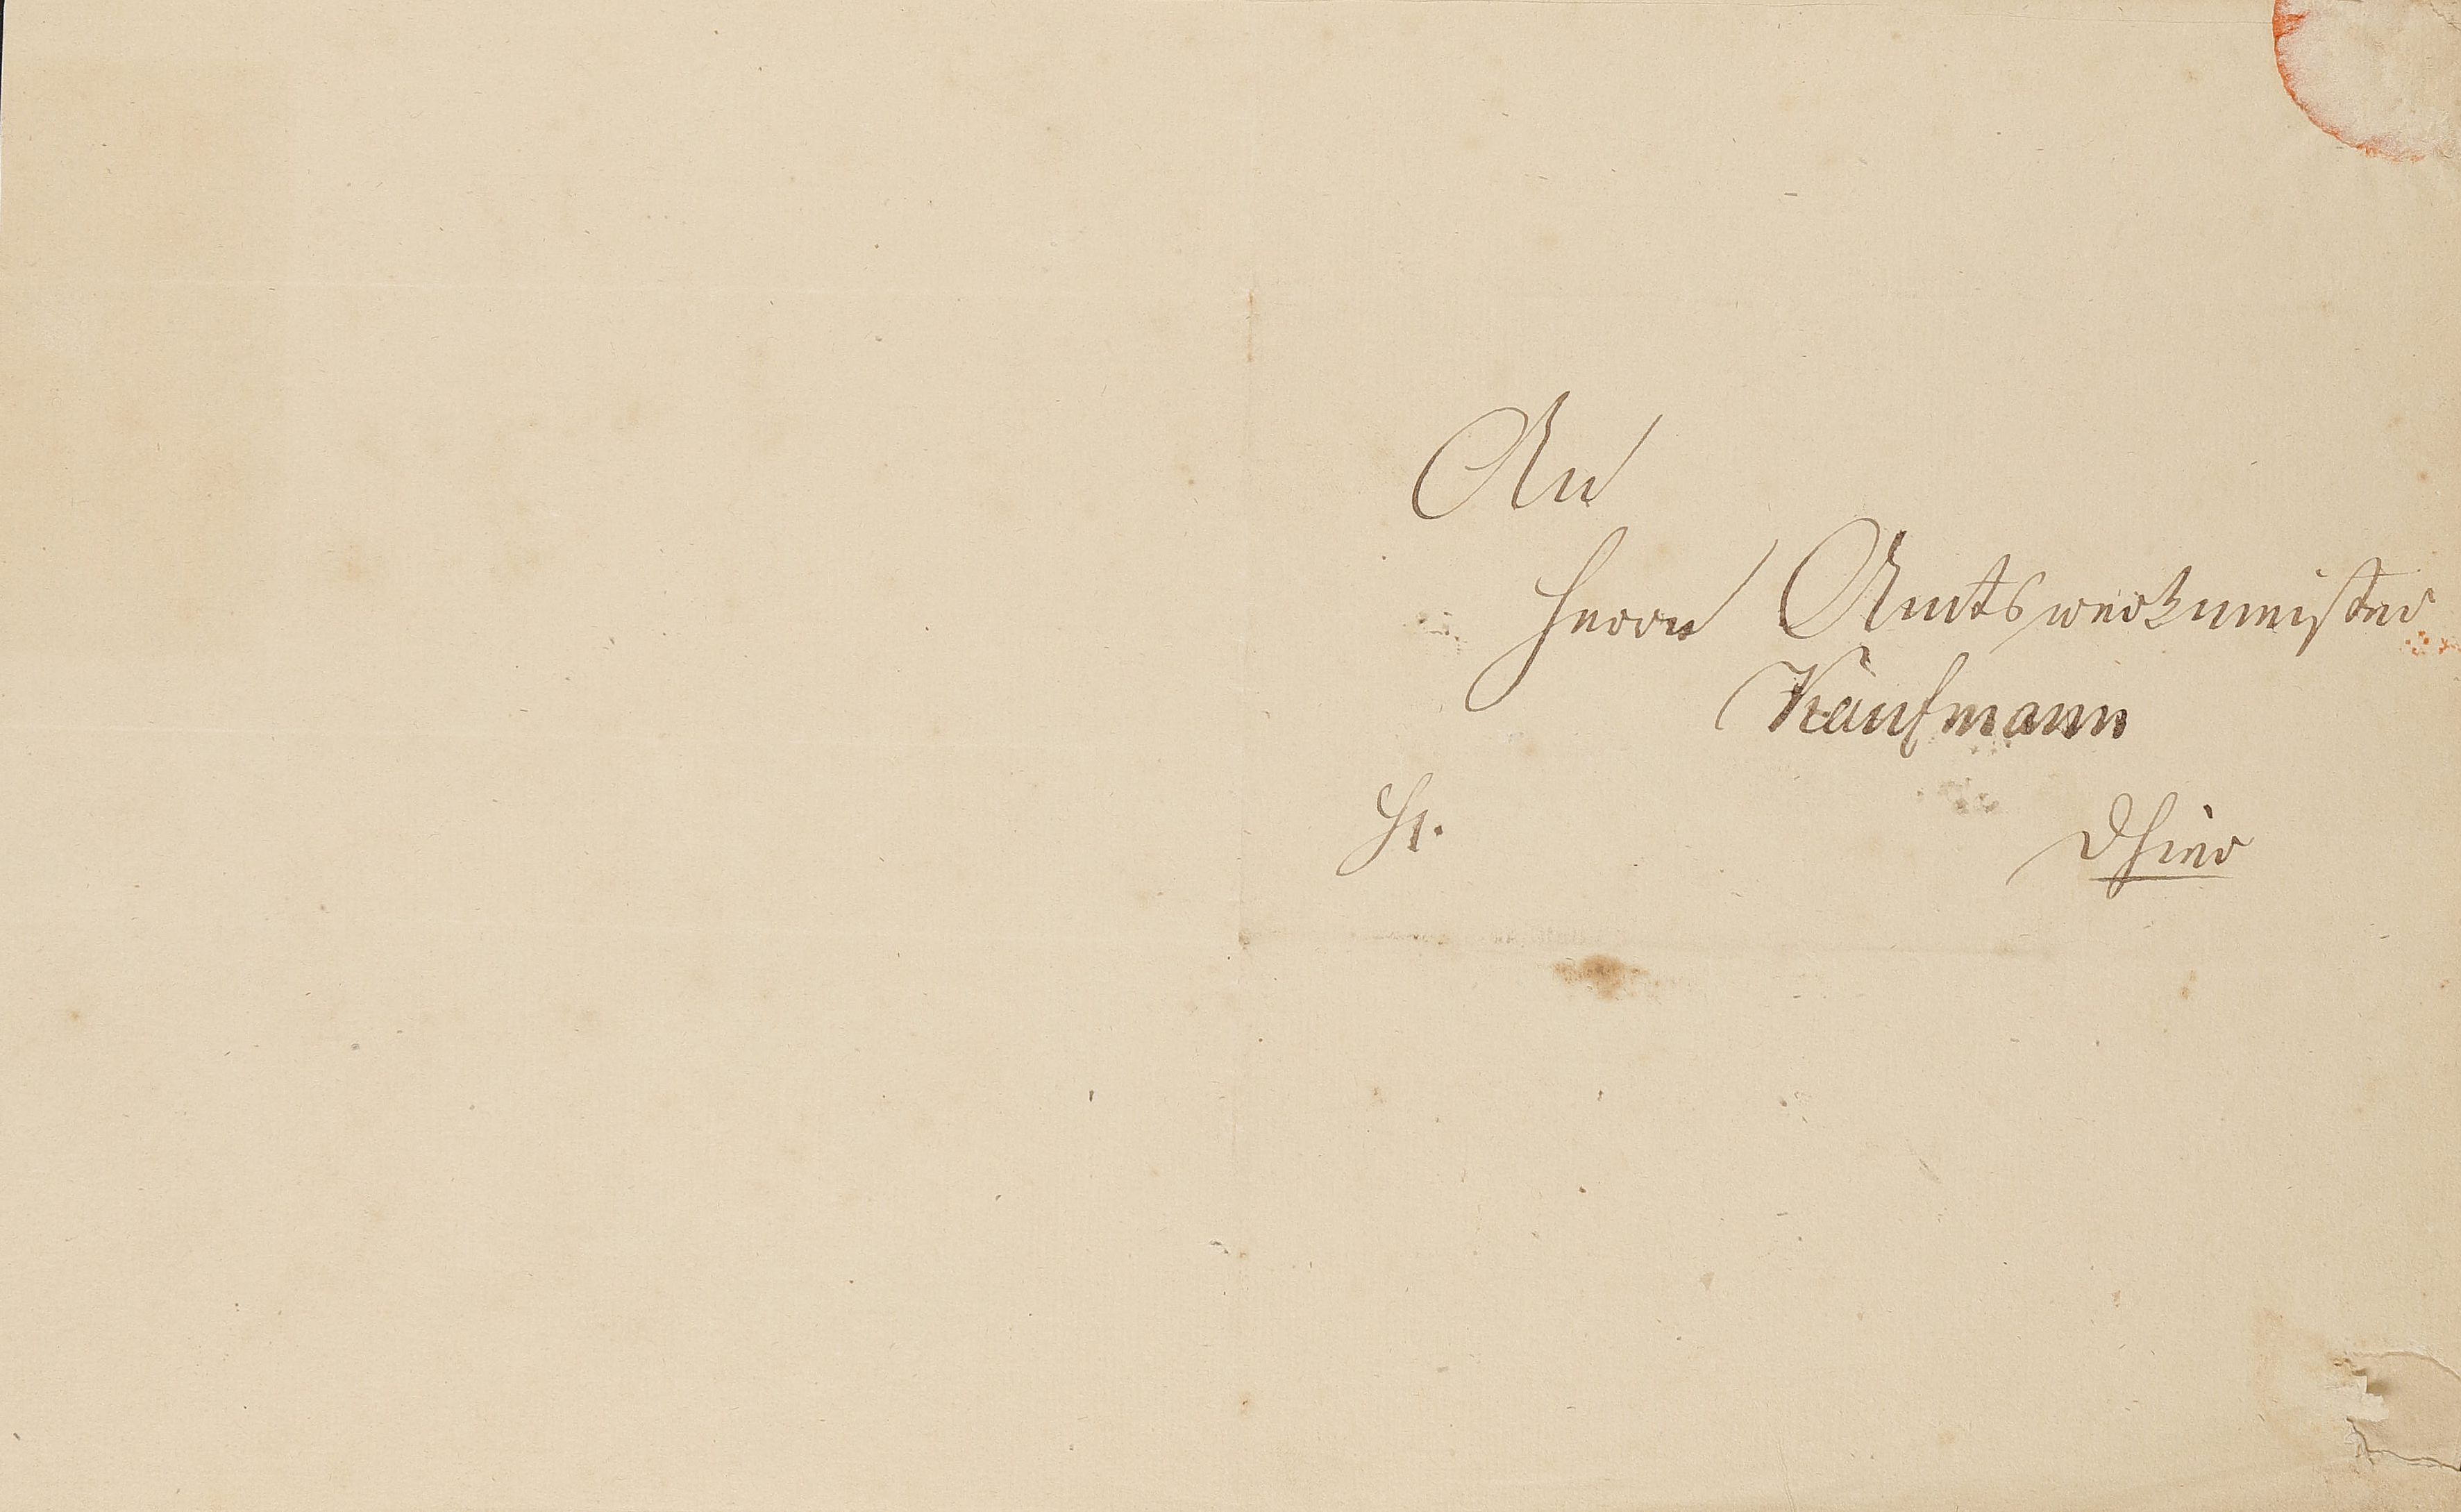 An
Herrn Amtswerkmeister
Kaufmann
Dhier